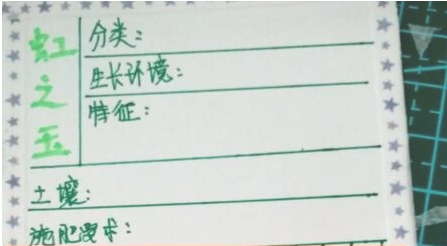 虹之玉
分类：
生长环境：
特征：
土壤：
施肥要求：